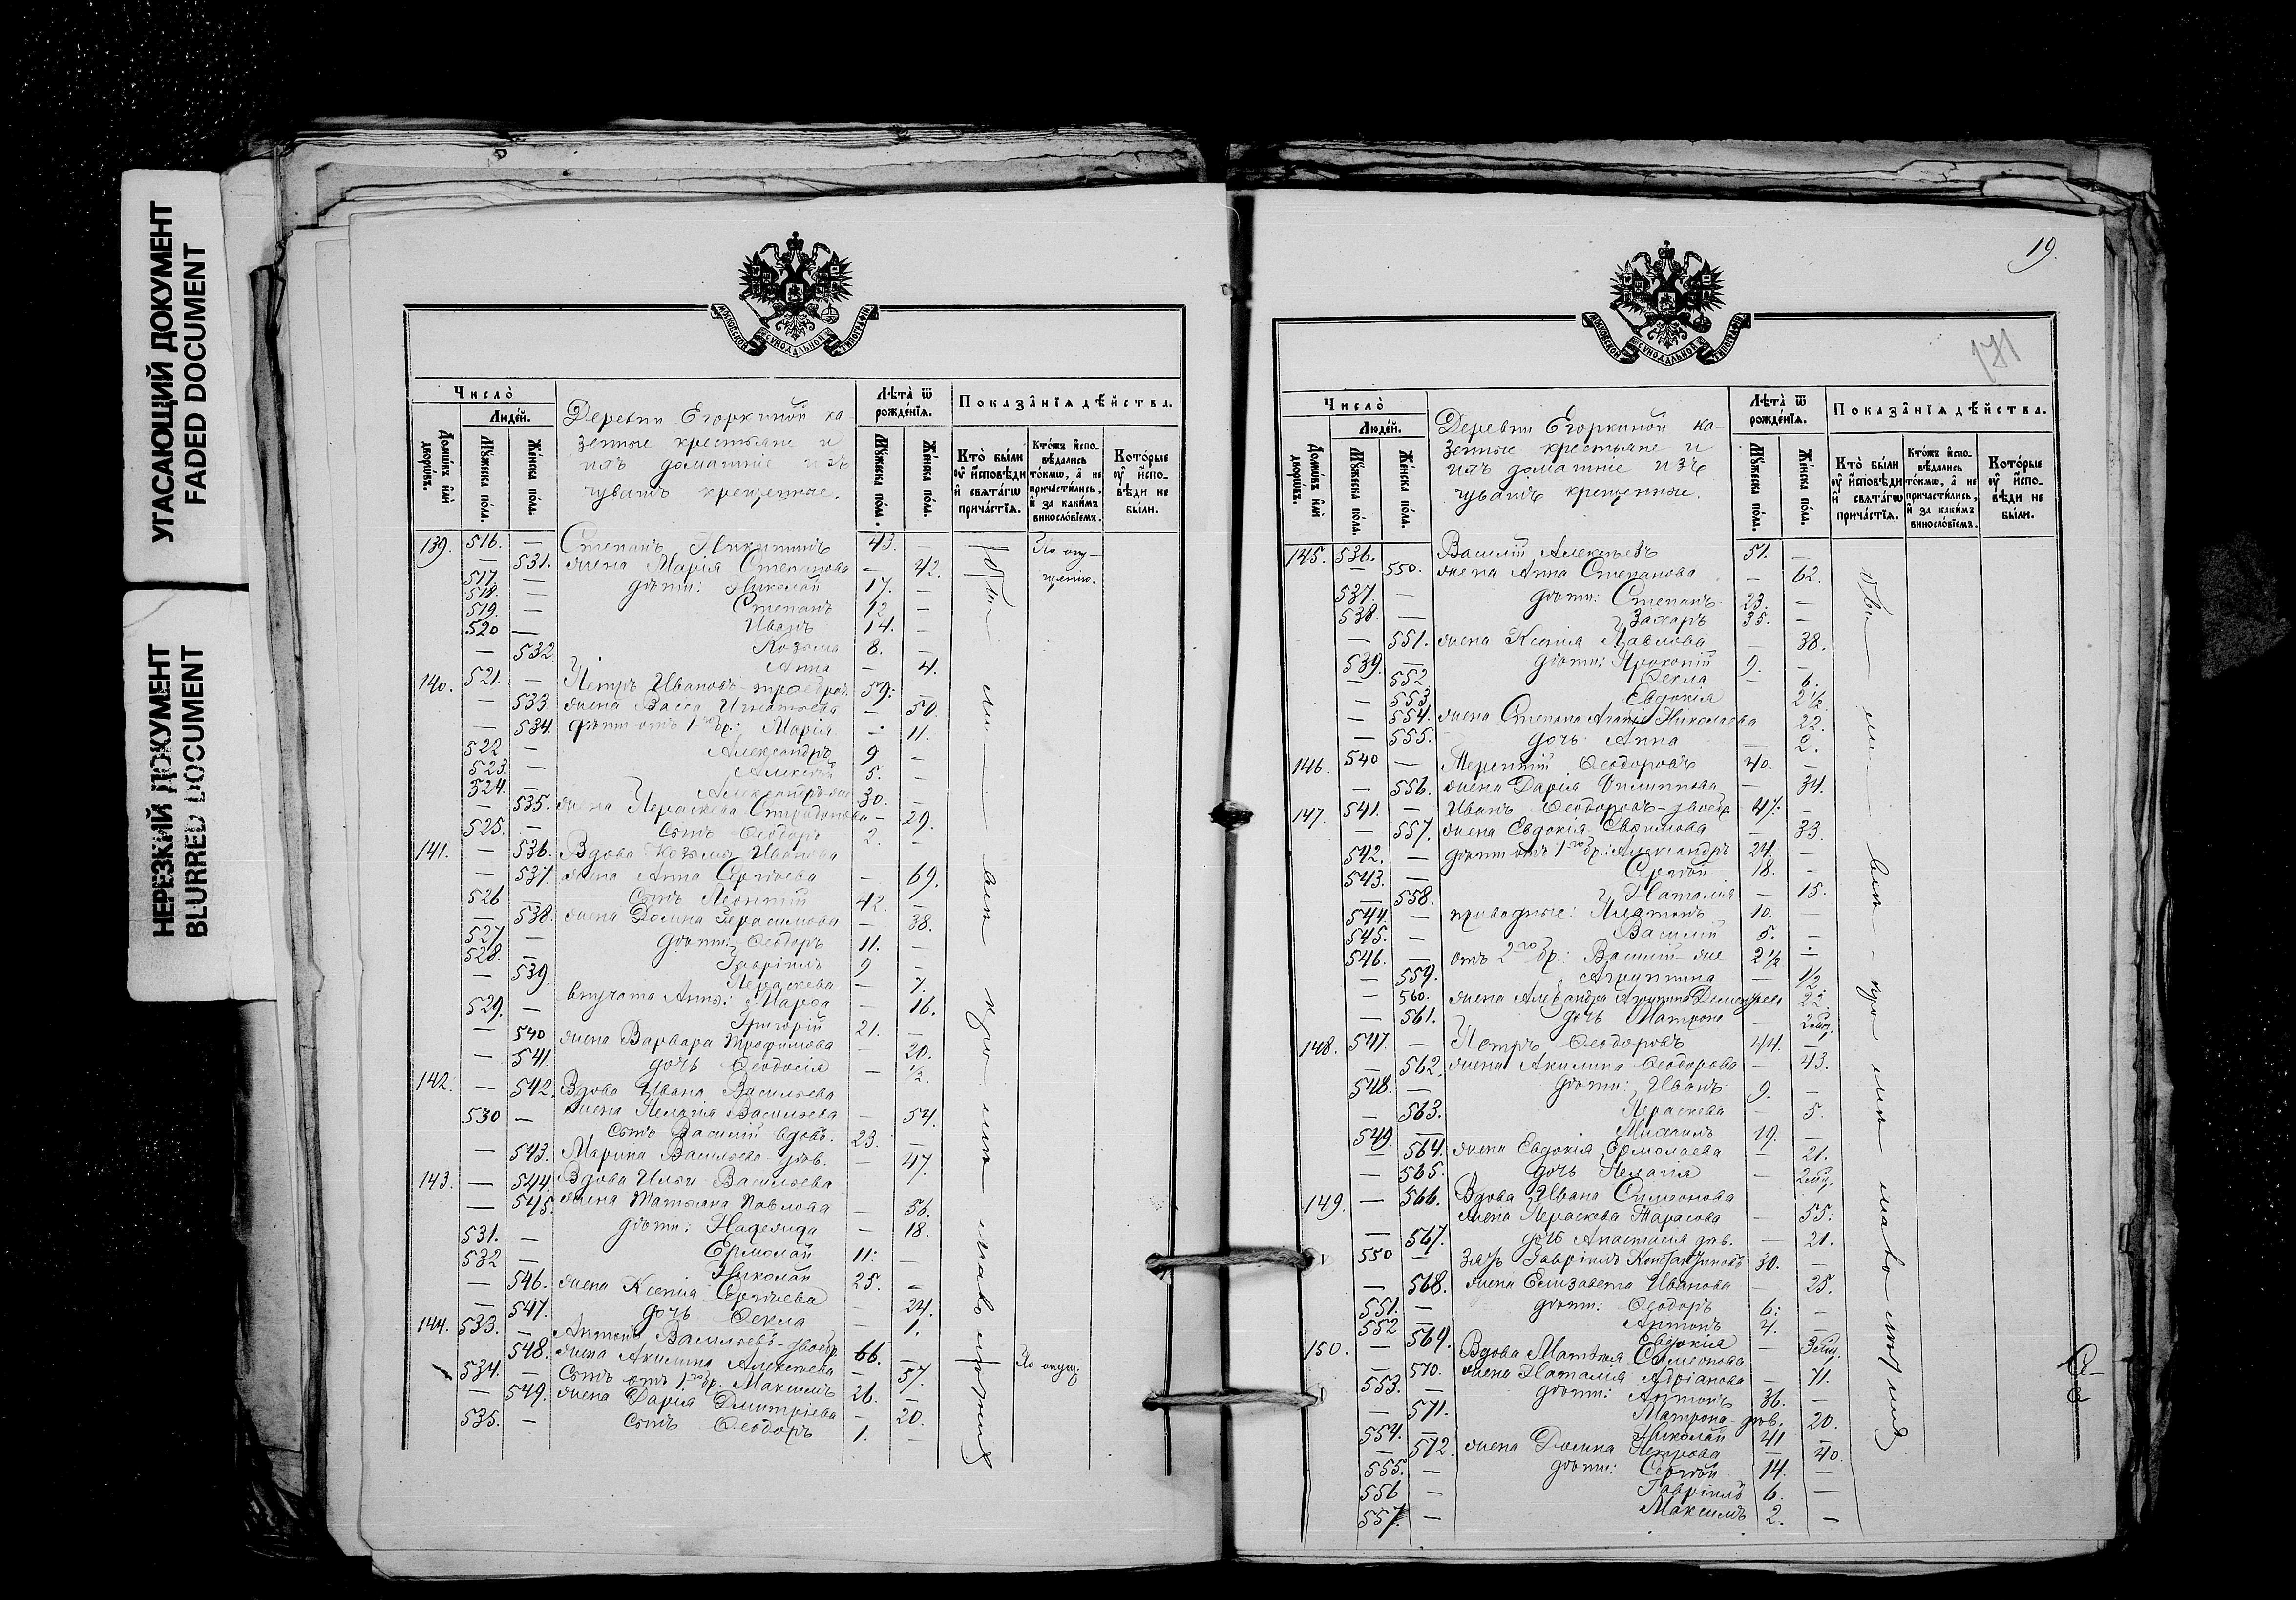 УГАСАЮЩИЙ ДОКУМЕНТ
FADED DOCUMENT
НЕРЕЗКИЙ ДОКУМЕНТ
BLURRED DOCUMENT
МОСКОВСКОЙ СУНОДАЛЬНОЙ ТИПОГРАФІИ
Число̀
Людей.
Домѡвъ или дворѡвъ.
Мꙋжеска пола.
Женска пола.
Деревни Егоркиной ка-
зенные крестьяне и
ихъ домашніе изъ
чувашъ крещенные.
Лѣта ѿ рожденія.
Мꙋжеска пола.
Женска пола.
Показанія дѣйства.
Кто были ᲂу исповѣди и свѧтагѡ причастія.
Ктожъ испо-вѣдались токмѡ, а не причастились, и за какимъ винословіемъ.
Которые ᲂу испо-вѣди не были.
139. 516. — Степанъ Никитинъ 43. —
— 531. жена Марія Степанова — 42.
517. — дѣти: Николай 17. —
518. — Степанъ 12 —
519. — Иванъ 14. —
520 — Козьма 8. —
— 532. Анна — 4.
По опу-
щенію.
140. 521. — Петръ Ивановъ 59. —
— 533 жена Васса Игнатьева — 50.
— 534. дѣти отъ 1го бр.: Марія — 11.
522 — Александръ 9 —
523. — Алексѣй 5. —
524. — Александръ же 30. —
— 535. жена Параскева Спиридонова — 29.
525. — сынъ Ѳеодоръ 2. —
141. — 536. Вдова Козьмы Иванова
— 537. жена Анна Сергѣева — 69.
526 — сынъ Леонтій 42. —
— 538. жена Домна Герасимова — 38.
527 — дѣти: Ѳеодоръ 11. —
528. — Гавріилъ 9 —
— 539. Параскева — 7.
внучата Анны: Марѳа — 16.
529. — Григорій 21. —
— 540 жена Варвара Трофимова — 20.
— 541. дочь Ѳеодосія — 1/2.
142. — 542. Вдова Ивана Васильева
жена Пелагія Васильева — 54.
530 — сынъ Василій вдовъ. 23. —
— 543. Марина Васильева дѣв. — 47.
143. — 544. Вдова Ильи Васильева
— 545. жена Татьяна Павлова — 56.
дѣти: Надежда — 18.
531. — Ермолай 11. —
532 — Николай 25. —
— 546. жена Ксенія Сергѣева — 24.
— 547. дочь Ѳекла — 1.
144. 533. — Антонъ Васильевъ-двоебр. 66. —
— 548. жена Акилина Алексѣева — 57.
534. — сынъ отъ 1го бр. Максимъ 26. —
— 549. жена Дарія Дмитріева — 20.
535. — сынъ Ѳеодоръ 1. —
По опущ.
19.
181
МОСКОВСКОЙ СУНОДАЛЬНОЙ ТИПОГРАФІИ
Число̀
Людей.
Домѡвъ или дворѡвъ.
Мꙋжеска пола.
Женска пола.
Деревни Егоркиной ка-
зенные крестьяне и
ихъ домашніе изъ
чувашъ крещенные.
Лѣта ѿ рожденія.
Мꙋжеска пола.
Женска пола.
Показанія дѣйства.
Кто были ᲂу исповѣди и свѧтагѡ причастія.
Ктожъ испо-вѣдались токмѡ, а не причастились, и за какимъ винословіемъ.
Которые ᲂу испо-вѣди не были.
145. 536. — Василій Алексѣевъ 51. —
— 550. жена Анна Степанова — 62.
537. — дѣти: Степанъ 23. —
538. — Захаръ 35. —
— 551. жена Ксенія Павлова — 38.
539. — дѣти: Прокопій 9. —
— 552. Ѳекла — 6.
— 553. Евдокія 2 1/2
— 554. жена Степана Николаева 22.
— 555. дочь Анна — 2.
146. 540 — Терентій Ѳеодоровъ 40. —
— 556. жена Дарія Филиппова — 34.
147. 541. — Иванъ Ѳеодоровъ-двоебр. 47. —
— 557. жена Евдокія Евфимова — 33.
542. — дѣти отъ 1го бр.: Александръ 24. —
543. — Сергѣй 18. —
— 558. Наталія — 15.
544. — приводные: Платонъ 10. —
545. — Василій 5. —
546. — отъ 2го бр.: Василій же 2 1/2 —
— 559. Агриппина — 1/2
— 560. жена Александра Агрипина 22.
— 561. дочь Матрона — 2 мц.
148. 547. — Петръ Ѳеодоровъ 44. —
— 562. жена Акилина Ѳеодорова — 43.
548. — дѣти: Иванъ 9. —
— 563. Параскева — 5.
549. — Михаилъ 19. —
— 564. жена Евдокія Ермолаева — 21.
— 565. дочь Пелагія — 2 мц.
149. — 566. Вдова Ивана Симеонова
жена Параскева Тарасова — 55.
— 567. дочь Анастасія дѣв. — 21.
550 — зять Гавріилъ Константиновъ 30. —
— 568. жена Елизавета Иванова — 25.
551. — дѣти: Ѳеодоръ 6. —
552 — Антонъ 4. —
— 569. Евдокія — 3 мц.
150. — Вдова Матѳея Симеонова
— 570. жена Наталія Адріанова — 71.
553. — дѣти: Антонъ 36. —
— 571. Матрона дѣв. 20.
554. — Николай 41 —
— 572. жена Домна Петрова — 40.
555. — дѣти: Сергѣй 14. —
556 — Гавріилъ 6. —
557. — Максимъ 2. —